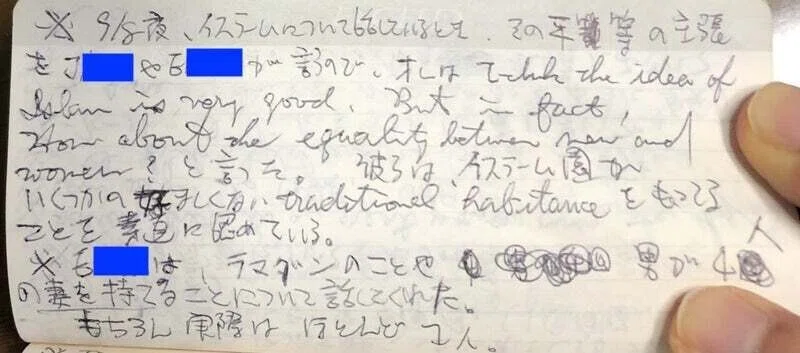 ※ 9/8夜、イスラームについて話しているとき、その平等の主張
を J や E が言うので、オレは I think the idea of
Islam is very good. But in fact,
How about the equality between men and
women? と言った。 彼らは、イスラーム国が
いくつかの好ましくない traditional habitance をもってる
ことを素直に認めている。
※ E は、ラマダンのことや 男が4人
の妻を持てることについて話してくれた。
もちろん実際はほとんど1人。